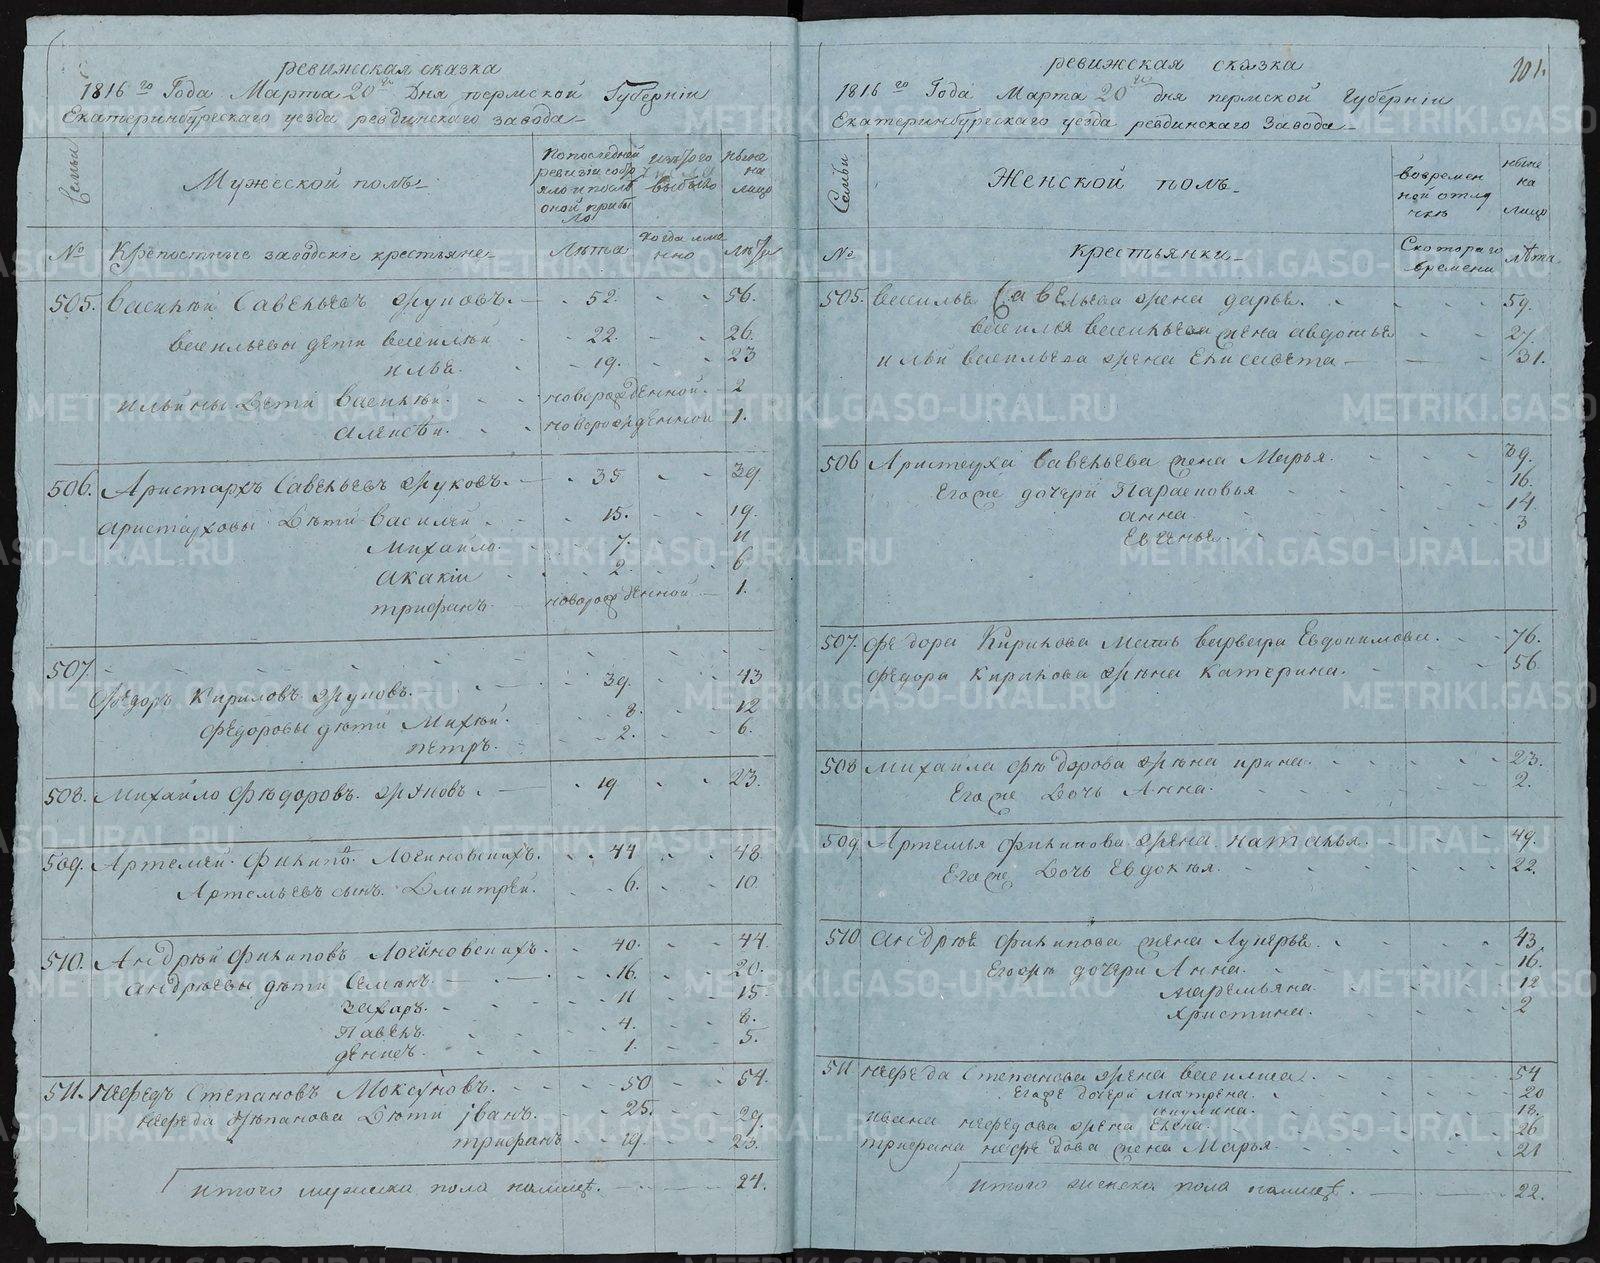 ревижская сказка
1816го Года Марта 20го Дня пермской Губерніи
Екатеринбургскаго уезда ревдинскаго завода
Семьи
Мужеской полъ
По последней ревизіи состояло и после оной прибыло
изъ того выбыло
ныне на лицо
№
Крепостные заводскіе крестьяне
Лѣта
когда именно
лѣта
505. Василей Савельевъ Жуковъ. 52. 56.
васильевы дети василей 22. 26.
илья. 19. 23
ильины дети василей. новорожденной. 2
алексѣй. новорожденной 1.
506. Аристархъ Савельевъ Жуковъ. 35 39
аристарховы дѣти василей 15. 19.
михайло. 7. 11
акакіи 2. 6
трифанъ. новорожденной 1.
507.
Федоръ Кириловъ Жуковъ. 39. 43
Федоровы дѣти 8. 12
петръ. 2. 6.
508. Михайло Фѣдоровъ Жуковъ. 19 23.
509. Артемей Филипо. Логиновскихъ. 44 48
Артемьевъ сынъ Дмитрей. 6. 10.
510. Андрѣй Филиповъ Логиновскихъ. 40. 44.
андрѣевы дѣти Семѣнъ. 16. 20.
захаръ. 11 15.
Павелъ. 4. 8.
денисъ. 1. 5.
511. Нефедъ Степановъ Моксуновъ. 50 54.
нефеда степанова дѣти иванъ. 25. 29.
трифанъ 19. 23.
итого мужеска пола налицо. 24.
101.
ревижская сказка
1816го Года Марта 20го дня пермской Губерніи
Екатеринбургскаго уезда ревдинскаго Завода
Семьи
Женской полъ
вовременной отлучке
ныне на лицо
№
Крестьянки
С котораго времени
лѣта
505. василья Савельева жена дарья. 59.
василья васильева жена авдотья 27.
ильи васильева жена Елисавета 31.
506 Аристарха савельева жена Марья. 39.
Его же дочери Парасковья 16.
анна 14
Евгенья. 3
507. Федора Кирилова мать варвара Евдокимова. 76.
Федора Кирилова жена катерина. 56
508 михаила фѣдорова жена ирина. 23.
Его же дочь Анна. 2.
509 Артемья филипова жена наталья. 49.
Его же дочь Евдокья. 22.
510 андрея филипова жена Лукерья. 43.
Егожъ дочери Анна. 16.
маремьяна. 12
христина. 2
511 нефеда Степанова жена василиса. 54
Егоже дочери матрена. 20
акулина. 18.
ивана нефедова жена Елена. 26
трифана нефедова жена Марья. 21
итого женска пола налицо. 22.
METRIKI.GASO-URAL.RU